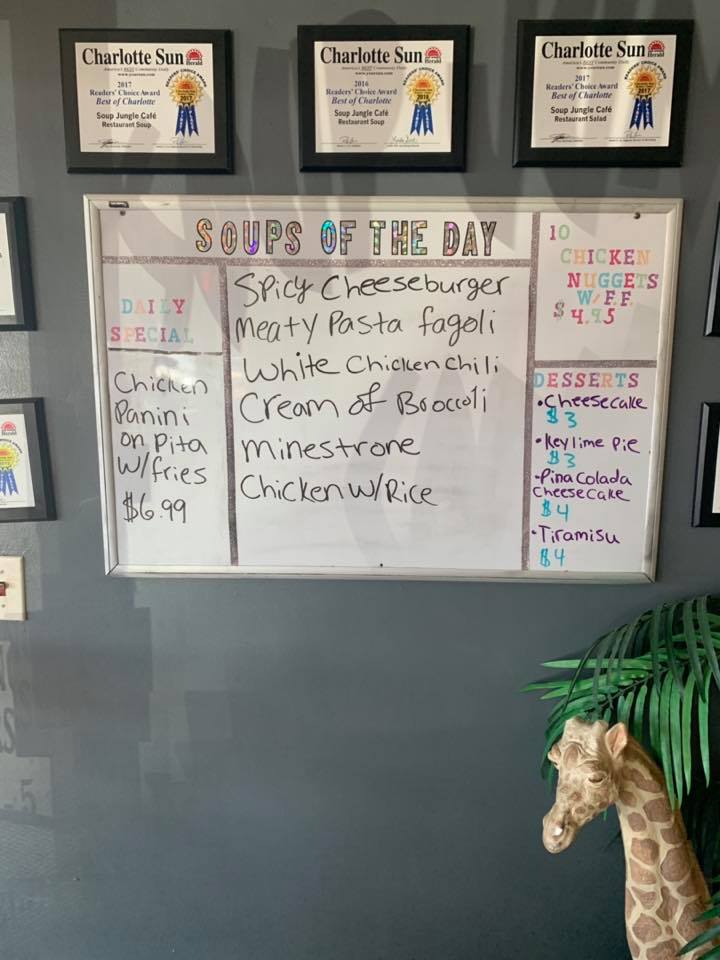 Charlotte Sun Herald
America's BEST Community Daily
www.yoursun.com
2017
Readers' Choice Award
Best of Charlotte
Soup Jungle Café
Restaurant Soup
2017
Charlotte Sun Herald
2016
Readers' Choice Award
Best of Charlotte
Soup Jungle Café
Restaurant Soup
Charlotte Sun Herald
America's BEST Community Daily
www.yoursun.com
2017
Readers' Choice Award
Best of Charlotte
Soup Jungle Café
Restaurant Salad
2017
SOUPS OF THE DAY
Spicy Cheeseburger
Meaty Pasta fagoli
White Chicken Chili
Cream of Broccoli
minestrone
Chicken W/Rice
DAILY
SPECIAL
Chicken
Panini
on Pita
W/fries
$6.99
10
CHICKEN
NUGGETS
W/F.F.
$4.95
DESSERTS
•Cheesecake
$3
•Key lime Pie
$3
•Pina Colada
CheeseCake
$4
•Tiramisu
$4